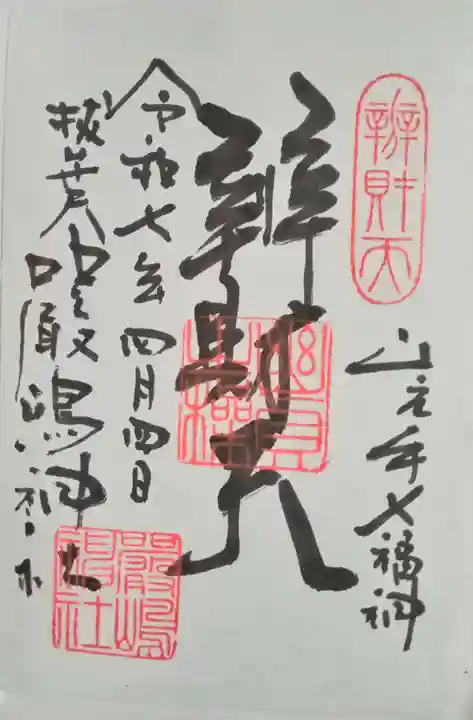 辨財天
山之手七福神
辨財天
令和七年四月四日
抜弁天
嚴嶋神社
嚴嶋神社